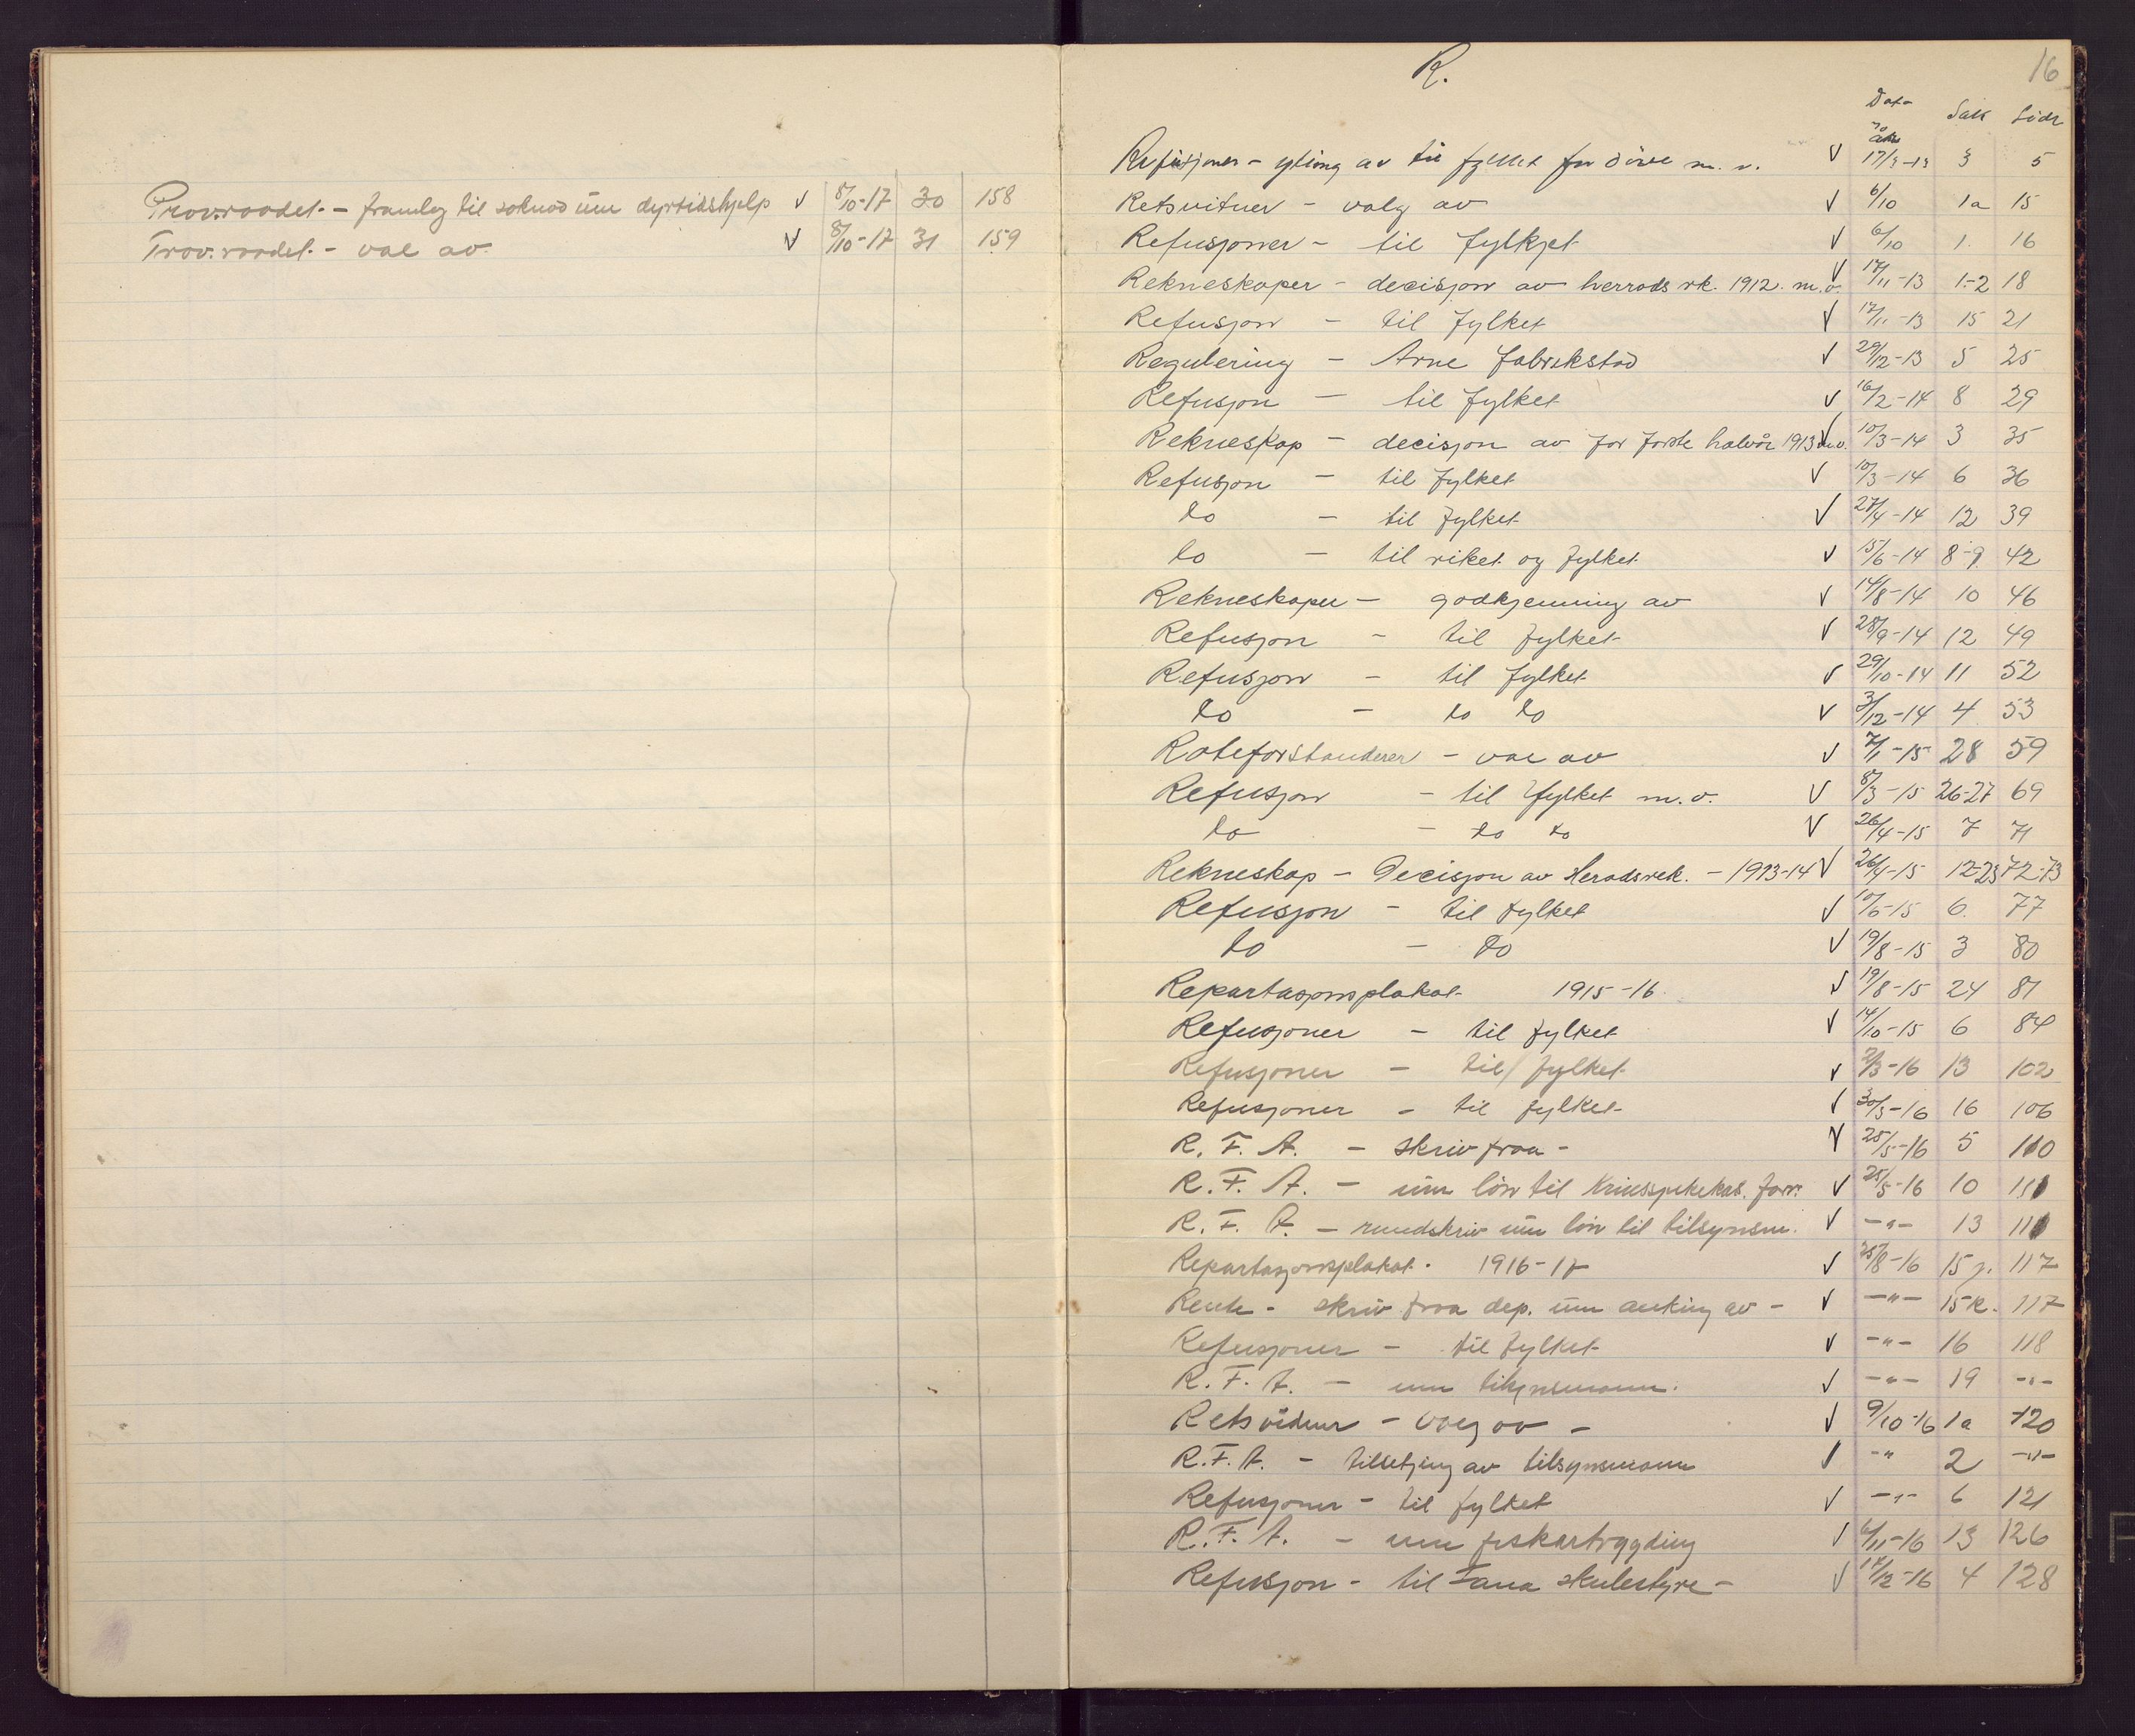 Provraadet. - framlegg til soknad um dyrtidshjelp V 8/10-17 30 158
Prov.raadet. - val av. V 8/10-17 31 159
R.
16
Dato Sak Side
Refusjoner - yting av til fylket for döve m. v. V 17/3-13 3 5
Retsvitner - valg av V 6/10 1a 15
Refusjoner - til fylkjet V 6/10 1. 16
Rekneskaper - decisjon av herrads rk. 1912. m.v. V 17/11-13 1-2 18
Refusjon - til fylket V 17/11-13 15 21
Regulering - Arne fabrikstad V 29/12-13 5 25
Refusjon - til fylket V 16/2-14 8 29
Rekneskap - decisjon av for förste halvår 1913 m.v. V 10/3-14 3 35
Refusjon - til fylket V 10/3-14 6 36
do - til fylket V 27/4-14 12 39
do - til riket og fylket V 15/6-14 8-9 42
Rekneskaper - godkjenning av V 14/8-14 10 46
Refusjon - til fylket V 28/9-14 12 49
Refusjon - til fylket V 29/10-14 11 52
do - do do V 3/12-14 4 53
Roteforstanderer - val av V 7/1-15 28 59
Refusjon - til fylket m.v. V 8/3-15 26-27 69
do - do do V 26/4-15 7 71
Rekneskap - Decisjon av Heradsrek. - 1913-14 V 26/4-15 12-23 72-73
Refusjon - til fylket V 10/6-15 6. 77
do - do V 19/8-15 3 80
Repartasjonsplakat 1915-16. V 19/8-15 24 81
Refusjoner - til fylket V 14/10-15 6 84
Refusjoner - til fylket V 2/3-16 13 102
Refusjoner - til fylket V 30/3-16 16 106
R. F. A. - skriv fraa - V 25/5-16 5 110
R. F. A. - um lön til forr. V 25/5-16 10 111
R. F. A. - rundskriv um lön til tilsynsm. V -"- 13 111
Repartasjonsplakat. 1916-17 V 25/8-16 15 j. 117
Rente - skriv fraa dep. um auking av - V -"- 15 k. 117
Refusjoner - til fylket V -"- 16 118
R. F. A. - um tilsynsmann. V -"- 19 -"-
Retsvidner - valg av - V 9/10-16 1a 120
R. F. A. - tilsetjing av tilsynsmann V -"- 2 -"-
Refusjoner - til fylket V -"- 6 121
R. F. A. - um fiskartrygding V 6/11-16 13 126
Refusjon - til Fana skulestyre - V 17/12-16 4 128